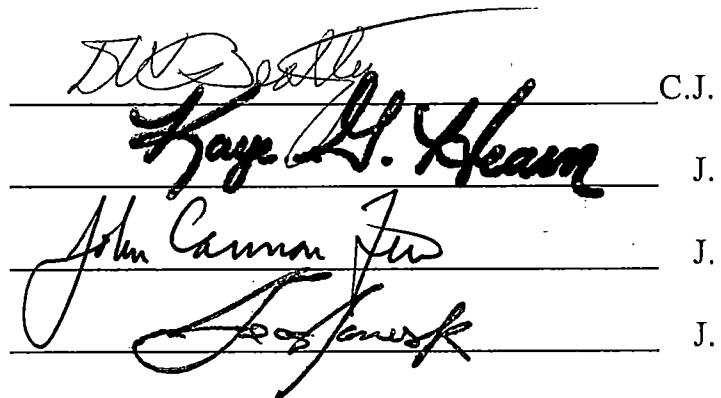 DW Beatty C.J.
Kaye G. Hearn J.
John Cannon Few J.
J.